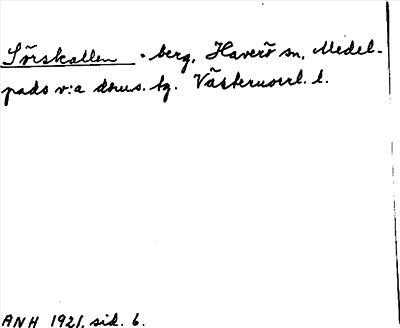 Sörskallen - berg, Haverö sn, Medel-
pads v:a doms. tg. Västernorrl. l.
ANH 1921, sid. 6.